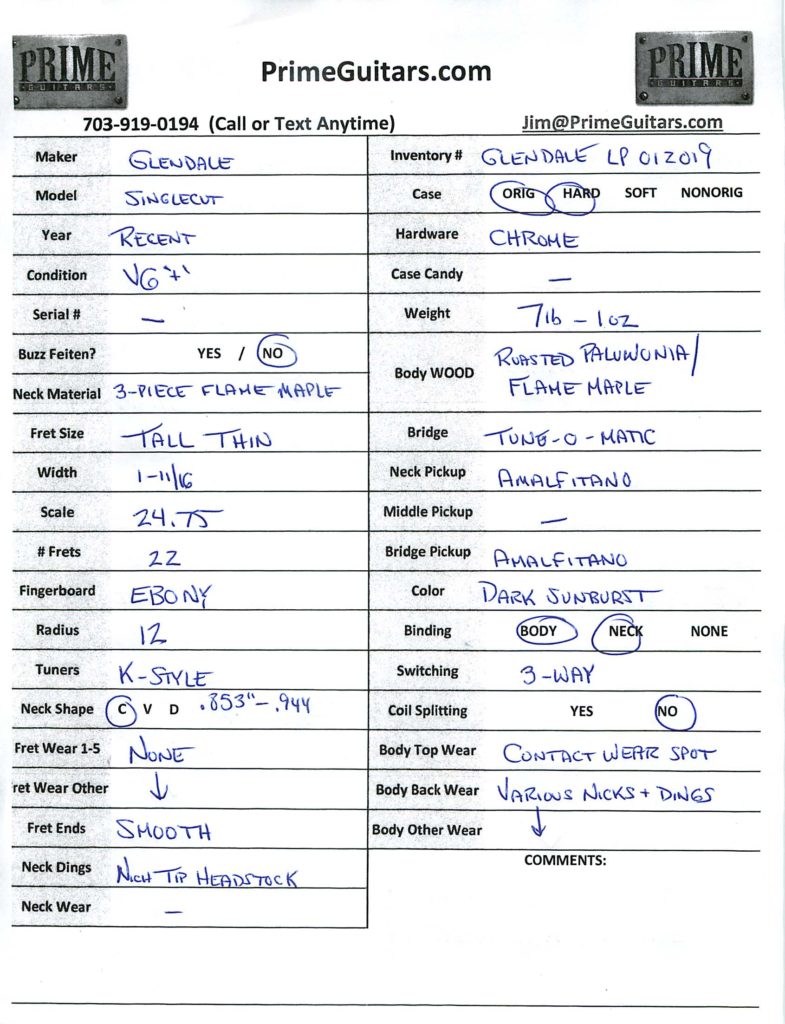 PRIME
GUITARS
PrimeGuitars.com
PRIME
GUITARS
703-919-0194 (Call or Text Anytime)
Jim@PrimeGuitars.com
Maker GLENDALE
Model SINGLECUT
Year RECENT
Condition VG "+"
Serial # —
Buzz Feiten? YES / NO
Neck Material 3-PIECE FLAME MAPLE
Fret Size TALL THIN
Width 1-11/16
Scale 24.75
# Frets 22
Fingerboard EBONY
Radius 12
Tuners K-STYLE
Neck Shape C V D .853"-.944
Fret Wear 1-5 NONE
ret Wear Other ↓
Fret Ends SMOOTH
Neck Dings NICH TIP HEADSTOCK
Neck Wear —
Inventory # GLENDALE LP 012019
Case ORIG HARD SOFT NONORIG
Hardware CHROME
Case Candy —
Weight 7lb - 1oz
Body WOOD ROASTED PALUWONIA/
FLAME MAPLE
Bridge TUNE-O-MATIC
Neck Pickup AMALFITANO
Middle Pickup —
Bridge Pickup AMALFITANO
Color DARK SUNBURST
Binding BODY NECK NONE
Switching 3-WAY
Coil Splitting YES NO
Body Top Wear CONTACT WEAR SPOT
Body Back Wear VARIOUS NICKS + DINGS
Body Other Wear ↓
COMMENTS: